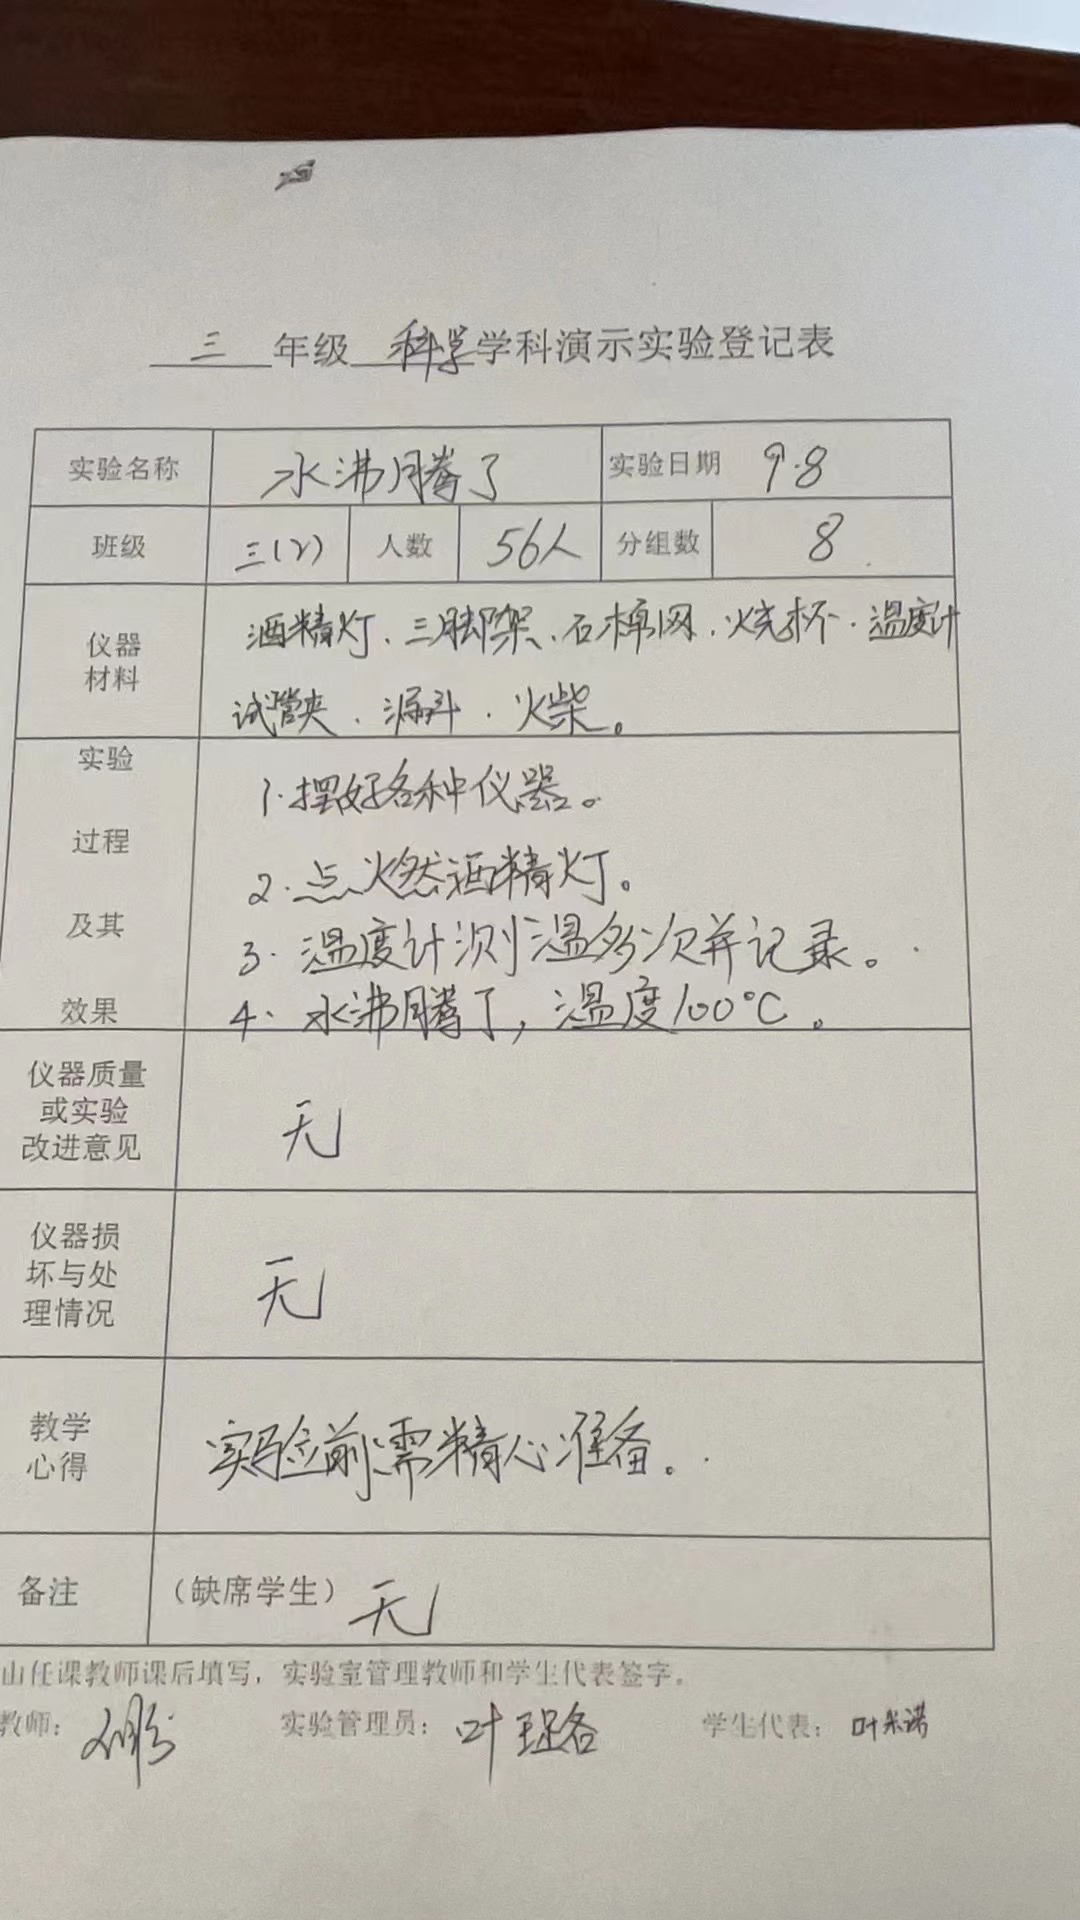 三 年级 科学学科演示实验登记表
实验名称 水沸腾了 实验日期 9.8
班级 三(2) 人数 56人 分组数 8
仪器 酒精灯、三脚架、石棉网、烧杯、温度计
材料 试管夹、漏斗、火柴。
实验 1.摆好各种仪器。
过程 2.点火然酒精灯。
及其 3.温度计测温多次并记录。
效果 4、水沸腾了,温度100°C。
仪器质量
或实验 无
改进意见
仪器损
坏与处 无
理情况
教学 实验前需精心准备。
心得
备注 (缺席学生) 无
任课教师课后填写,实验室管理教师和学生代表签字。
教师: 实验管理员: 叶 学生代表: 叶米诺